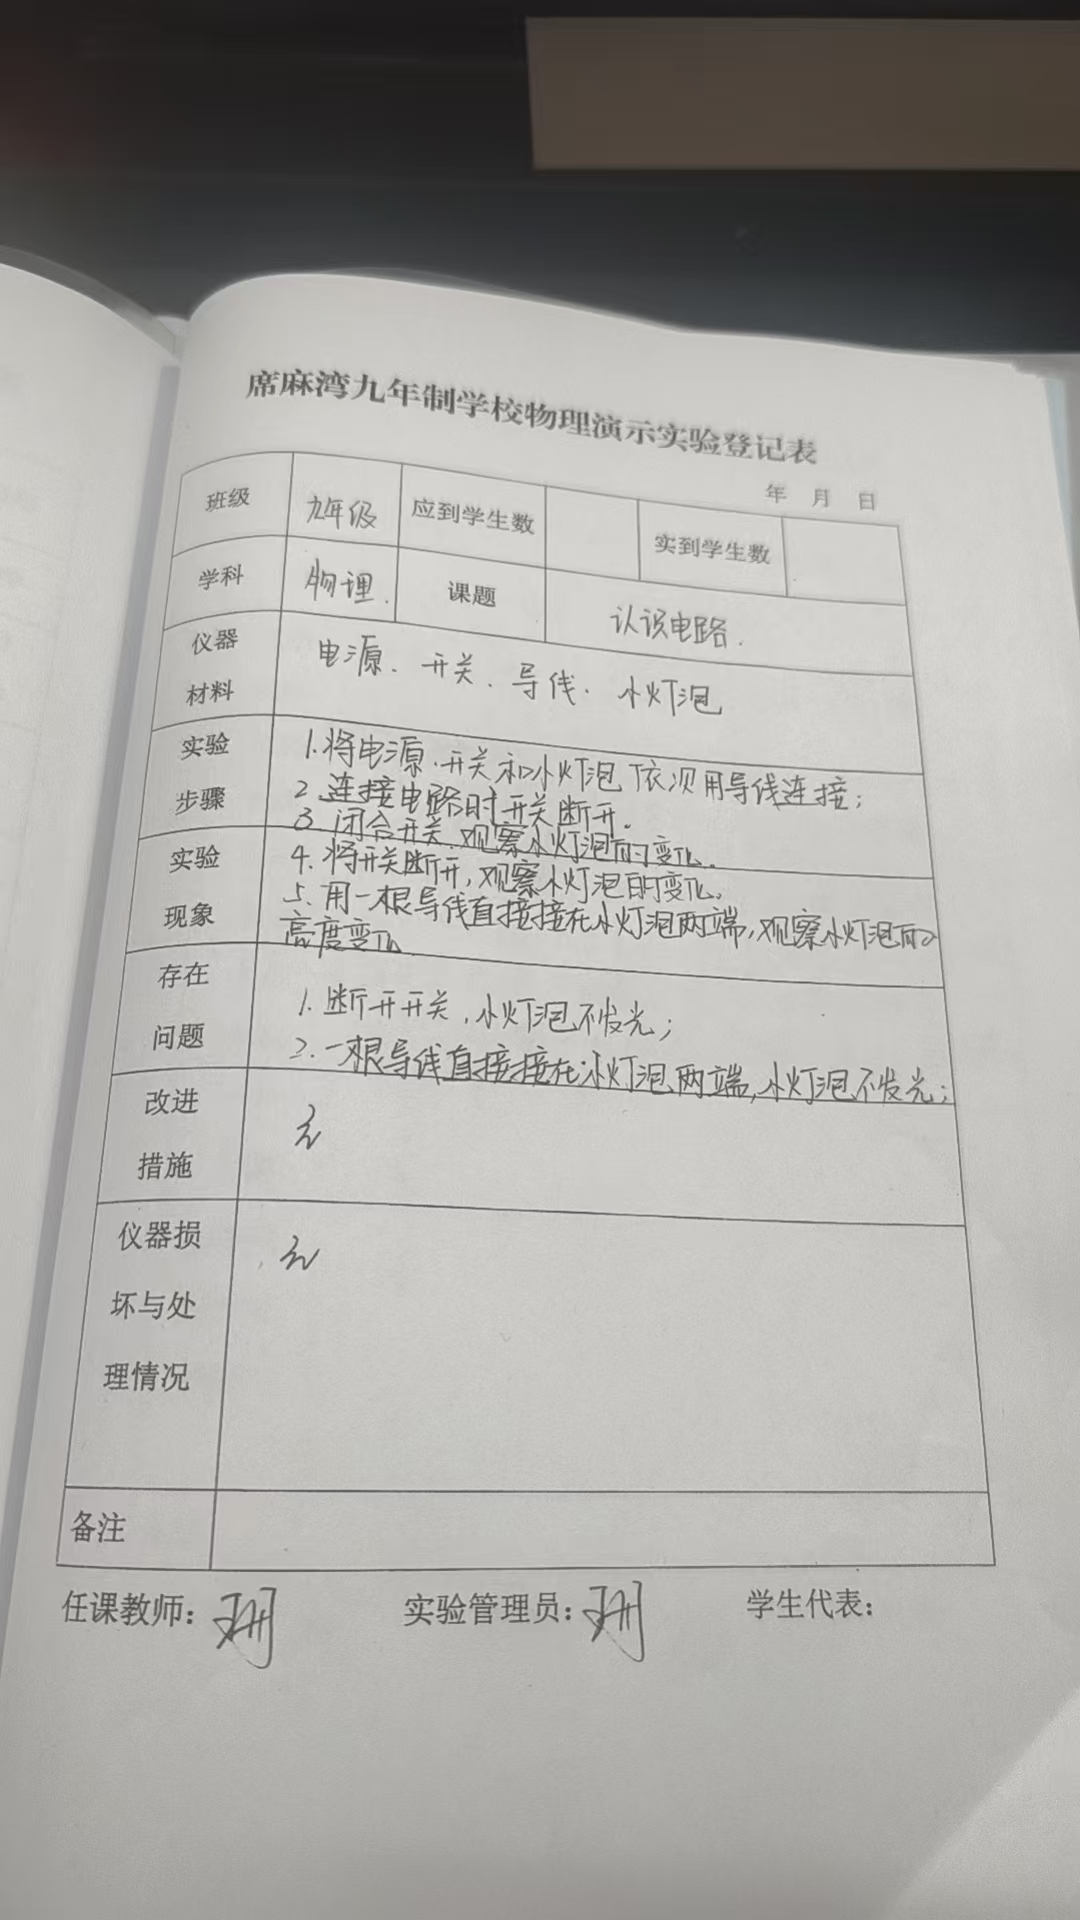 席麻湾九年制学校物理演示实验登记表
年 月 日
班级 九年级 应到学生数 实到学生数
学科 物理. 课题 认识电路.
仪器 电源、开关、导线、小灯泡
材料
实验 1.将电源、开关和小灯泡依次用导线连接;
步骤 2.连接电路时开关断开.
3.闭合开关,观察小灯泡的变化.
实验 4.将开关断开,观察小灯泡的变化.
现象 5.用一根导线直接接在小灯泡两端,观察小灯泡的
亮度变化.
存在 1.断开开关,小灯泡不发光;
问题 2.一根导线直接接在小灯泡两端,小灯泡不发光;
改进 无
措施
仪器损 无
坏与处
理情况
备注
任课教师: 实验管理员: 学生代表: